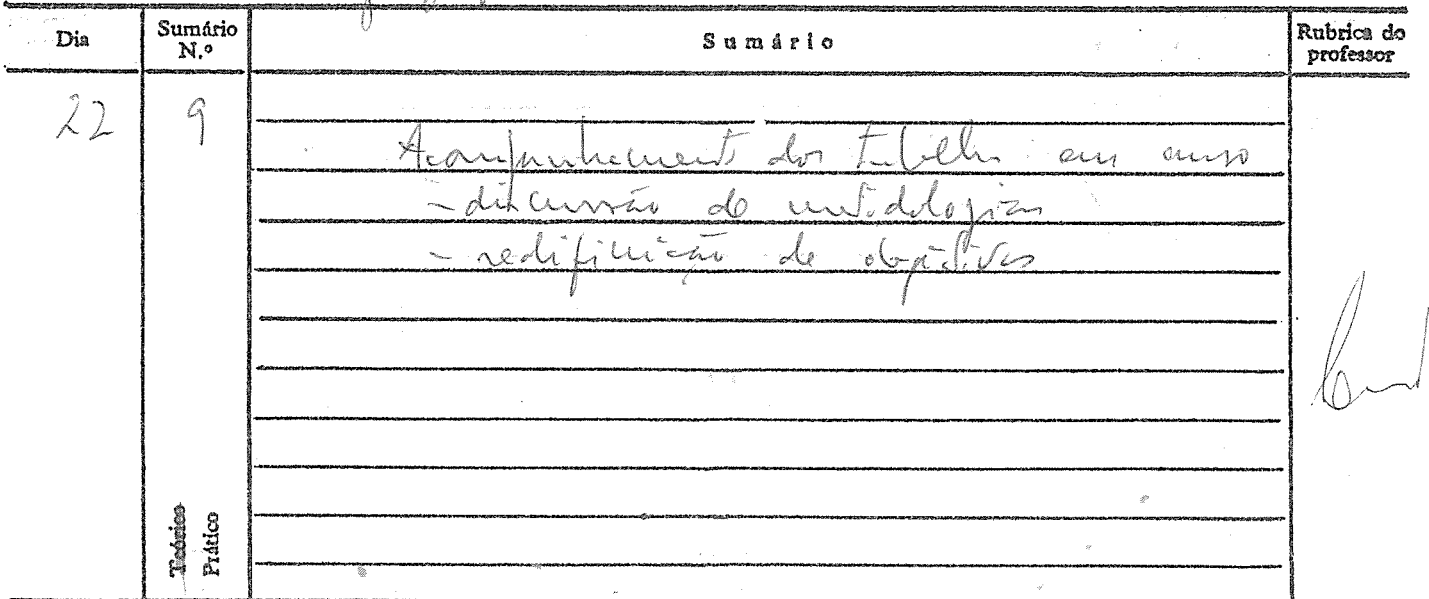 Dia Sumário N.º Sumário Rubrica do professor
22 9
Acompanhamento dos trabalhos em curso
- discussão de metodologias
- redifinição de objectivos
Teórico
Prático